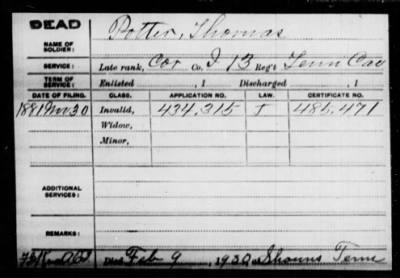 DEAD
NAME OF SOLDIER: Potter, Thomas
SERVICE: Late rank, Cor Co. I 13 Reg't Tenn Cav
TERM OF SERVICE: Enlisted , 1 Discharged , 1
DATE OF FILING. CLASS. APPLICATION NO. LAW. CERTIFICATE NO.
1881 Nov 30 Invalid, 434.315 I 485.471
Widow,
Minor,
ADDITIONAL SERVICES:
REMARKS:
Died Feb 9, 1930, at Shouns Tenn